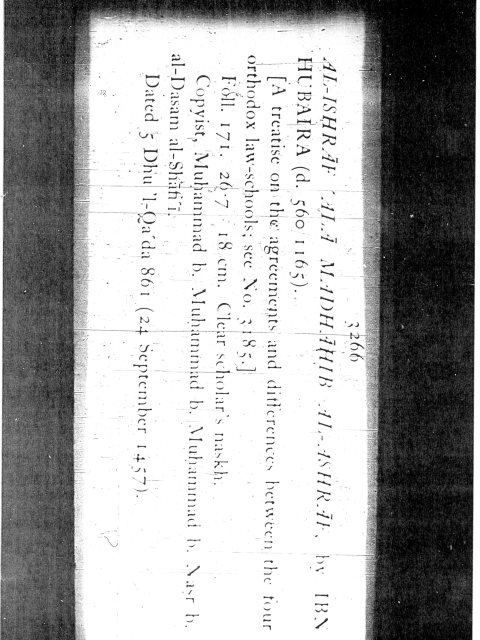 3266
AL-ISHRĀF ‘ALĀ MADHĀHIB AL-ASHRĀF, by IBN
HUBAIRA (d. 560/1165).
[A treatise on the agreements and differences between the four
orthodox law-schools; see No. 3185.]
Foll. 171. 26·7 × 18 cm. Clear scholar's naskh.
Copyist, Muḥammad b. Muḥammad b. Muḥammad b. Naṣr b.
al-Dasam al-Shāfi‘ī.
Dated 5 Dhu 'l-Qa‘da 861 (24 September 1457).